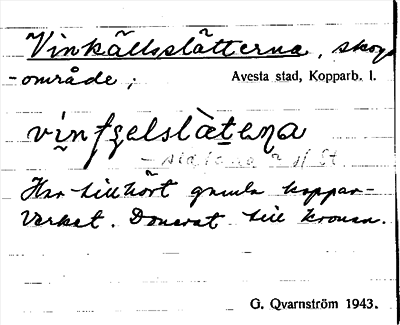 Vinkällsslätterna, skogs
-område;
Avesta stad, Kopparb. l.
vinfgelslätena
Har tillhört gamla koppar-
verket. Donerat till kronan.
G. Qvarnström 1943.